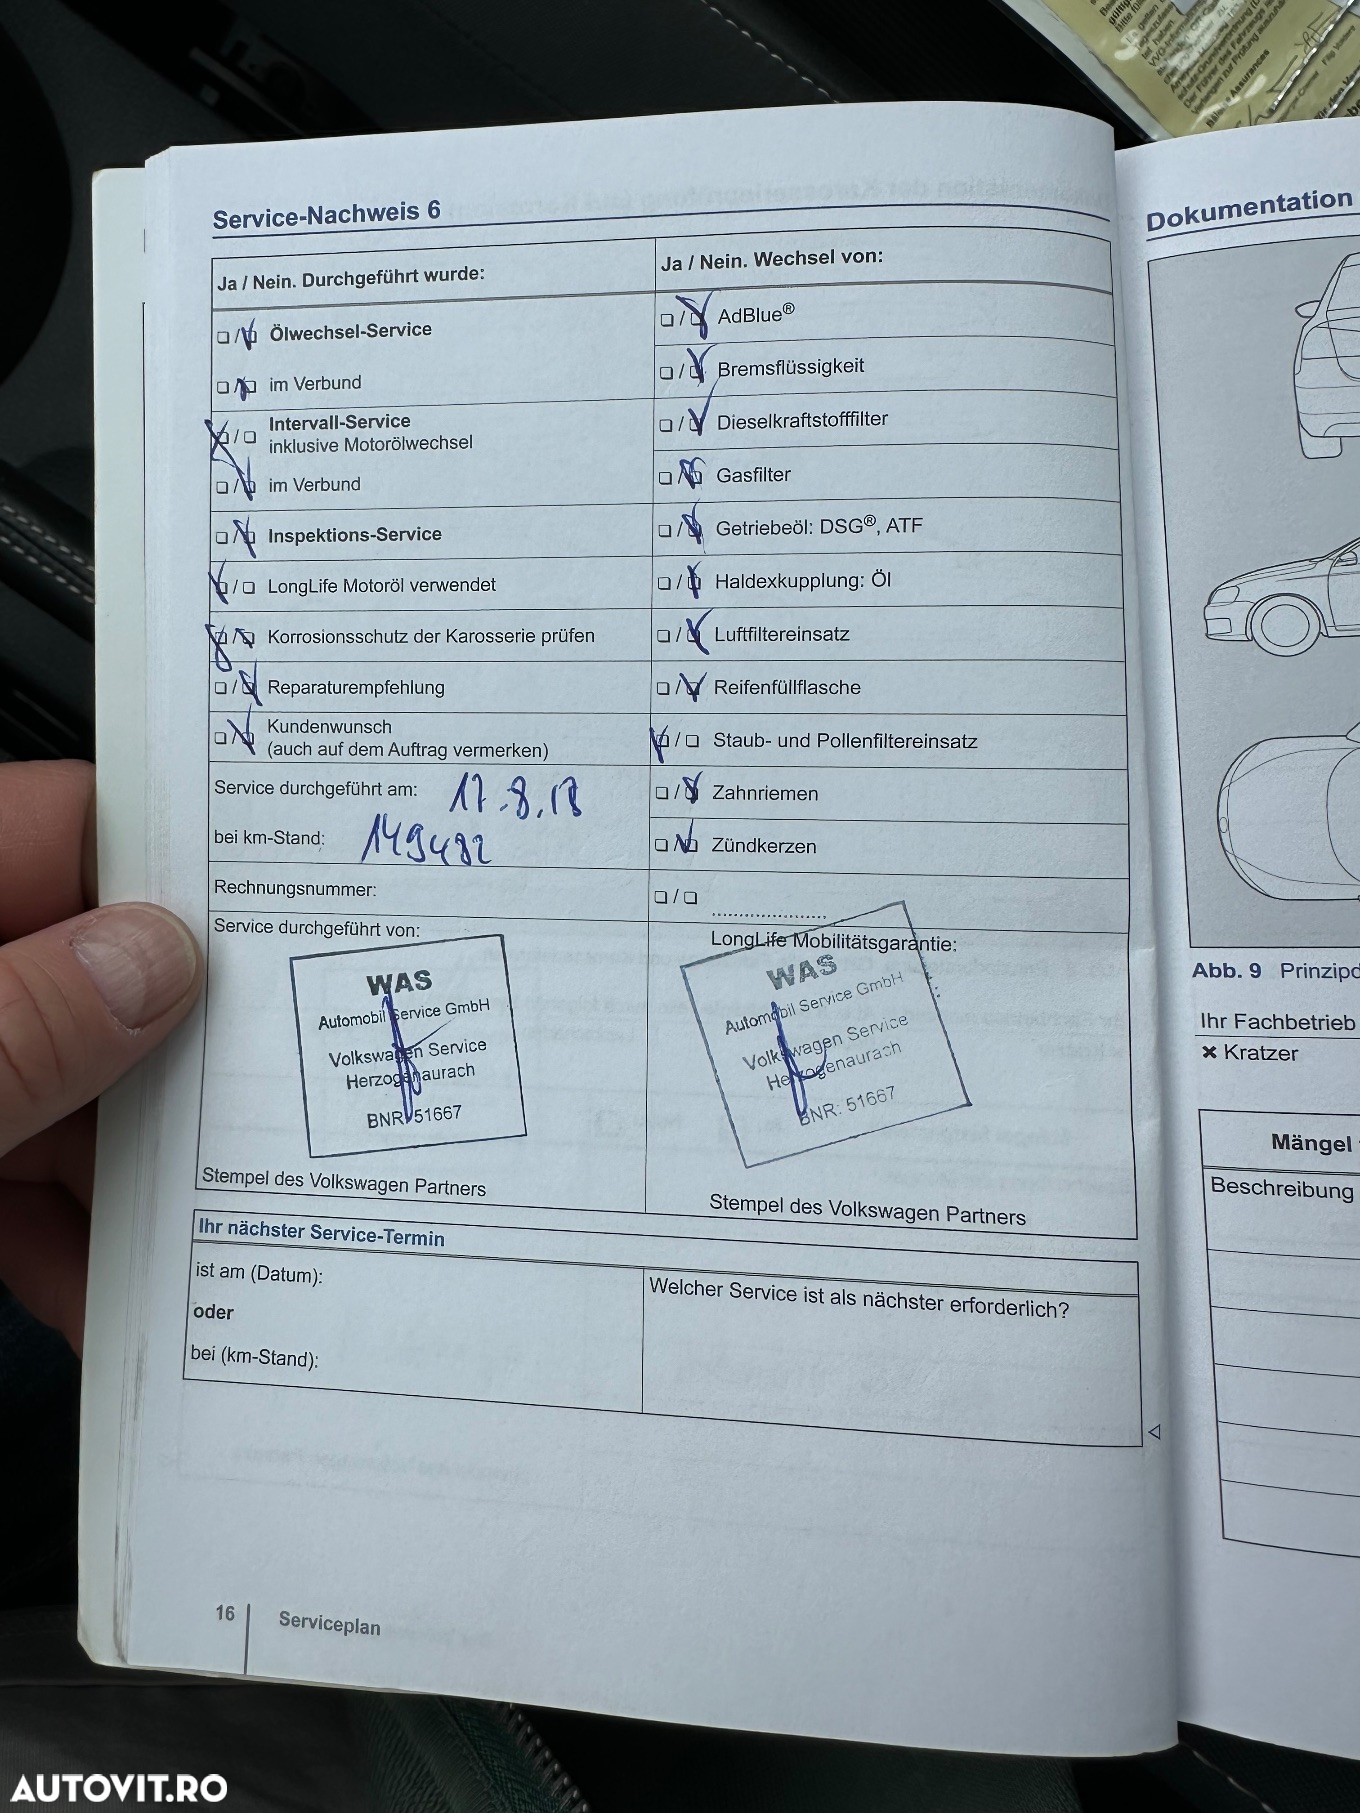 Service-Nachweis 6
Ja / Nein. Durchgeführt wurde:
Ölwechsel-Service
im Verbund
Intervall-Service
inklusive Motorölwechsel
im Verbund
Inspektions-Service
LongLife Motoröl verwendet
Korrosionsschutz der Karosserie prüfen
Reparaturempfehlung
Kundenwunsch
(auch auf dem Auftrag vermerken)
Service durchgeführt am: 17.8.18
bei km-Stand: 149482
Rechnungsnummer:
Service durchgeführt von:
WAS
Automobil Service GmbH
Volkswagen Service
Herzogenaurach
BNR: 51667
Stempel des Volkswagen Partners
Ja / Nein. Wechsel von:
AdBlue®
Bremsflüssigkeit
Dieselkraftstofffilter
Gasfilter
Getriebeöl: DSG®, ATF
Haldexkupplung: Öl
Luftfiltereinsatz
Reifenfüllflasche
Staub- und Pollenfiltereinsatz
Zahnriemen
Zündkerzen
LongLife Mobilitätsgarantie:
WAS
Automobil Service GmbH
Volkswagen Service
Herzogenaurach
BNR: 51667
Stempel des Volkswagen Partners
Ihr nächster Service-Termin
ist am (Datum):
oder
bei (km-Stand):
Welcher Service ist als nächster erforderlich?
16 Serviceplan
Dokumentation
Abb. 9
Ihr Fachbetrieb
× Kratzer
Mängel
Beschreibung
AUTOVIT.RO